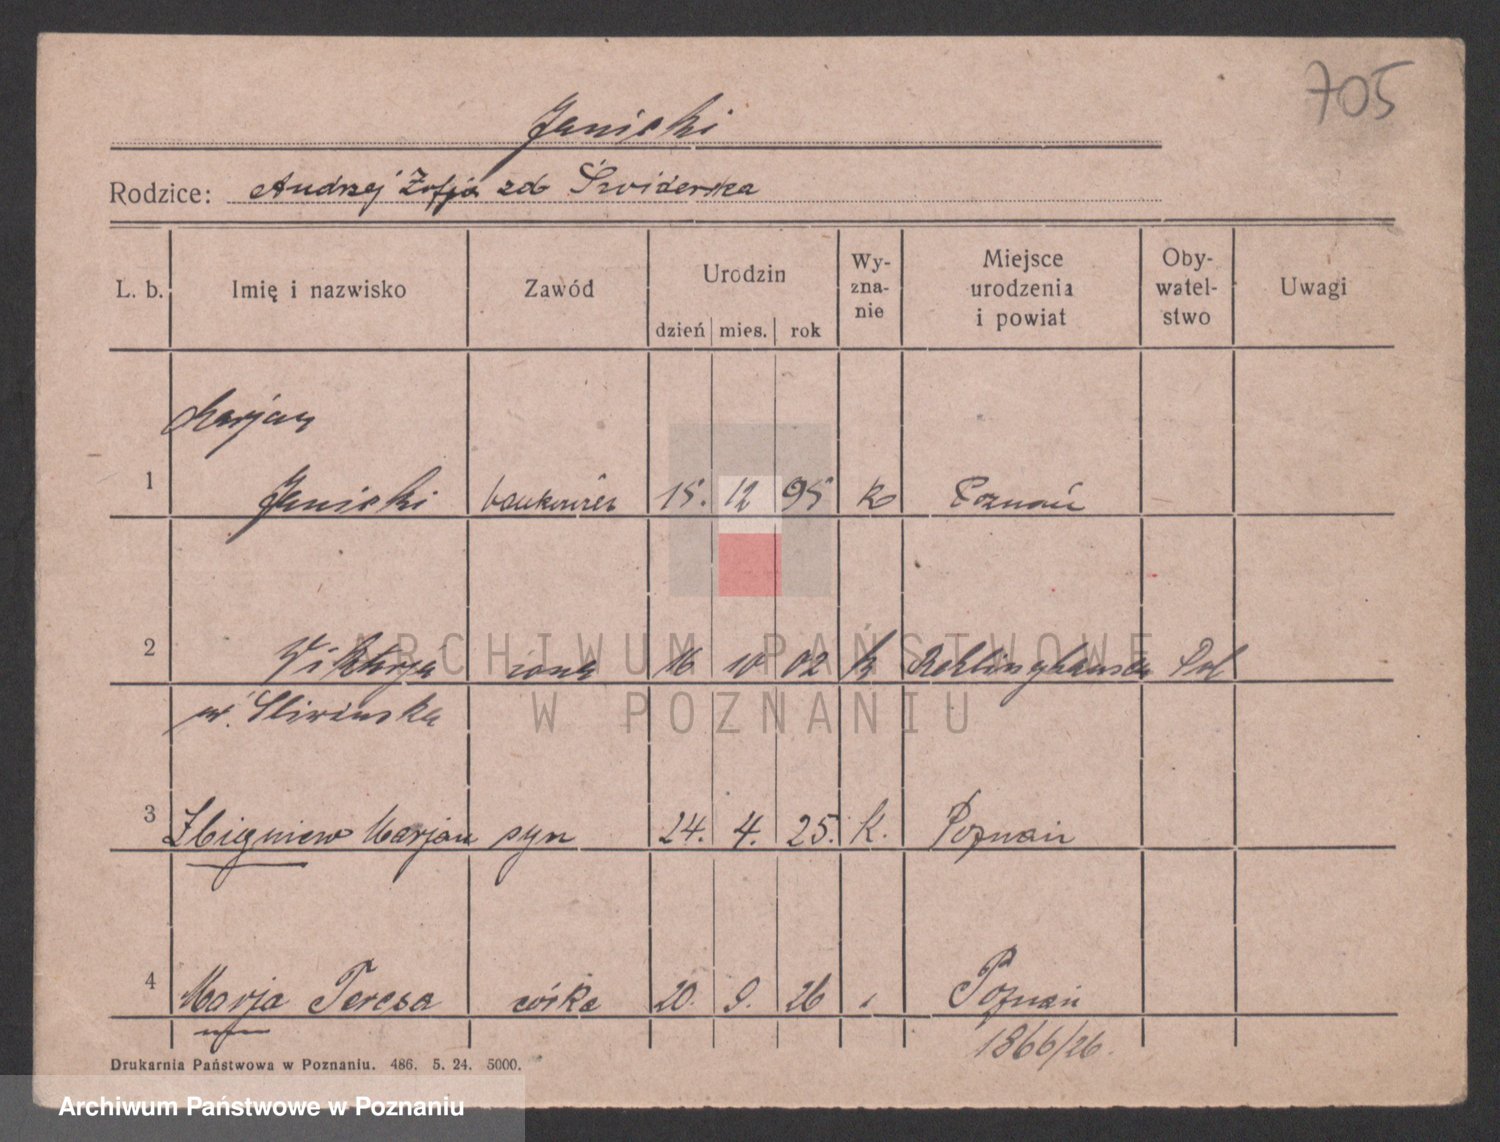 705
Janicki
Rodzice: Andrzej Zofja zd Świderska
L. b. Imię i nazwisko Zawód Urodzin dzień mies. rok Wy-zna-nie Miejsce urodzenia i powiat Oby-watel-stwo Uwagi
Marjan
1 Janicki bankowiec 15. 12 95 k Poznań
2 Wiktorja żona 16 10 02 k Recklinghausen Pol
ur. Śliwińska
3 Zbigniew Marjan syn 24. 4. 25. k. Poznań
4 Marja Teresa córka 20. 9. 26 Poznań
1866/26.
Drukarnia Państwowa w Poznaniu. 486. 5. 24. 5000.
ARCHIWUM PAŃSTWOWE
W POZNANIU
Archiwum Państwowe w Poznaniu